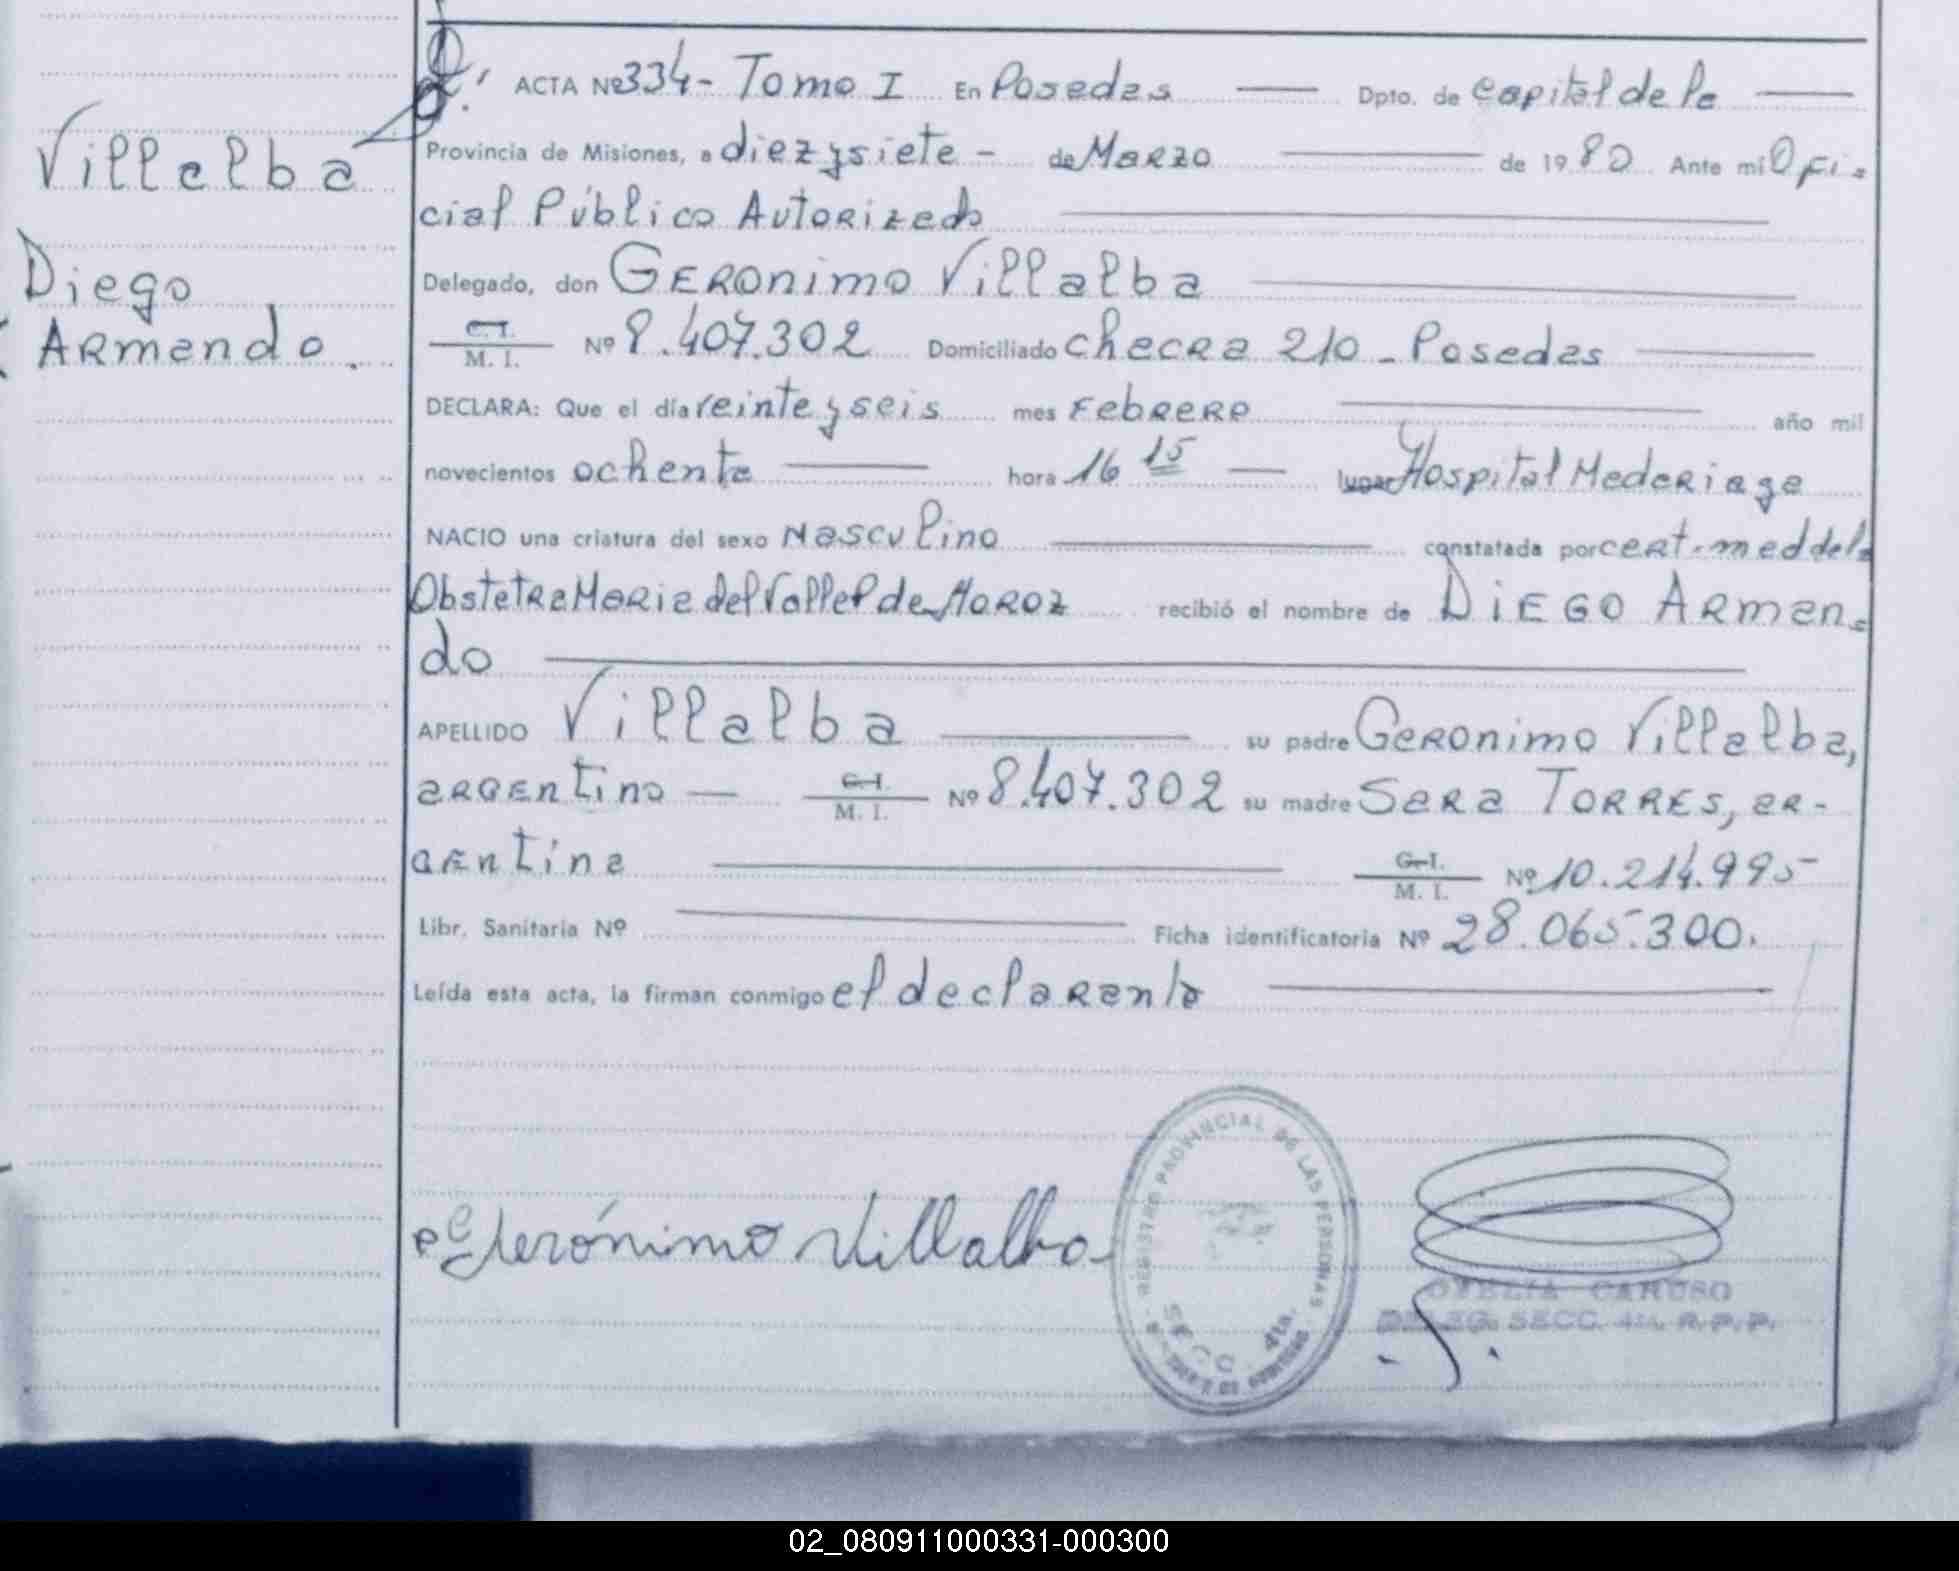 Villalba
Diego
Armando.
ACTA Nº 334- Tomo I En Posadas Dpto. de Capital de la
Provincia de Misiones, a diez y siete - de Marzo de 1980 Ante mi Ofi-
cial Público Autorizado
Delegado, don GERONIMO Villalba
C.I. M. I. Nº 8.407.302 Domiciliado checra 210 - Posadas
DECLARA: Que el día veinte y seis mes Febrero año mil
novecientos ochenta hora 16 15 lugar Hospital Madariaga
NACIO una criatura del sexo Masculino constatada por cert. med de la
Obstetra Maria del Valle P. de Moroz recibió el nombre de DIEGO ARMAN-
do
APELLIDO Villalba su padre GERONIMO Villalba,
argentino C.I. M. I. Nº 8.407.302 su madre SARA TORRES, ar-
gentina C.I. M. I. Nº 10.214.995
Libr. Sanitaria Nº Ficha identificatoria Nº 28.065.300.
Leída esta acta, la firman conmigo el declarante
Jerónimo Villalba
REGISTRO PROVINCIAL DE LAS PERSONAS
SECC. 4ta.
OFELIA CARUSO
DELEG. SECC. 4ta. R.P.P.
02_080911000331-000300